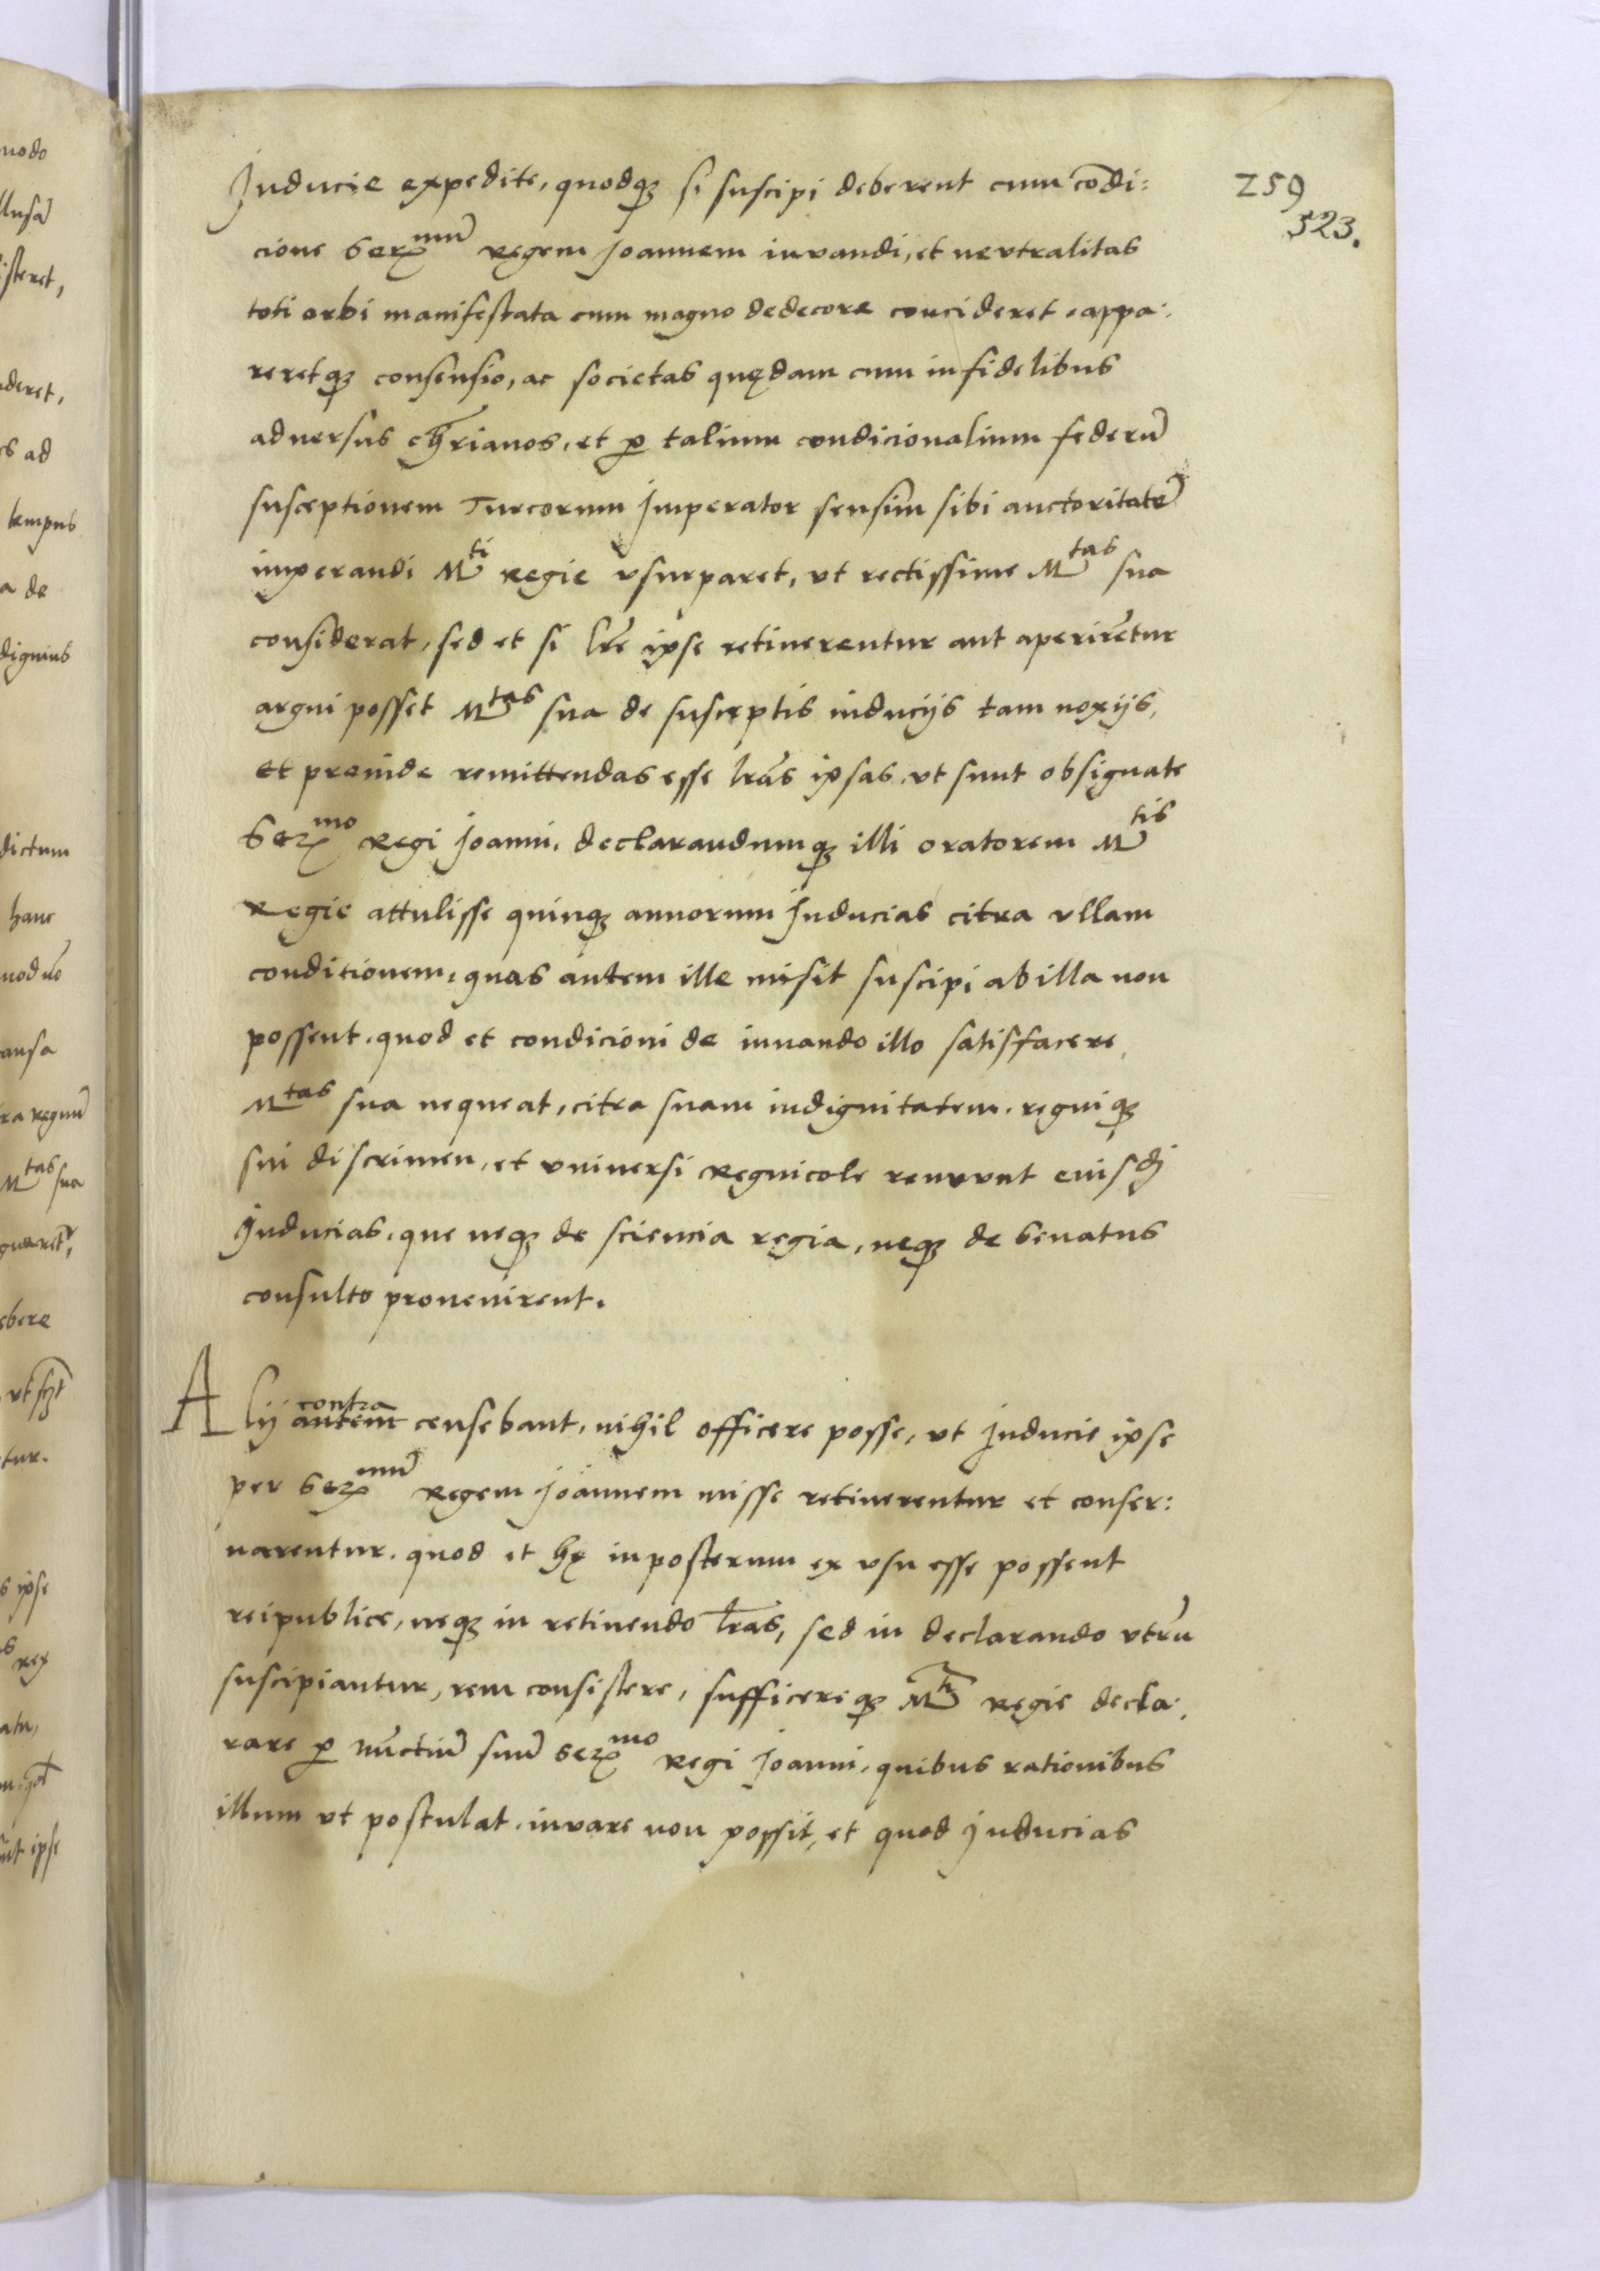 Inducie expedite, quodq₃ si suscipi deberent cum cõdi:
cione Serᵐᵘ̃ Regem Joannem iuvandi, et nevtralitas
toti orbi manifestata cum magno dedecore concideret, appa:
reretq₃ consensio, ac societas quędam cum infidelibus
aduersus chr̃ianos, et ꝑ talium condicionalium federũ
susceptionem Turcorum Imperator sensim sibi auctoritatẽ
imperandi Mᵗⁱ Regie vsurparet, vt rectissime Mᵗᵃˢ sua
considerat, sed et si lr̃e ipse retinerentur aut aperirẽtur
argui posset Mᵗᵃˢ sua de susceptis induciis tam noxijs,
et proinde remittendas esse lrãs ipsas, vt sunt obsignate
Serᵐᵒ Regi Joanni, declarandumq₃ illi oratorem Mᵗⁱˢ
Regie attulisse quinq₃ annorum Inducias citra vllam
conditionem, quas autem ille misit suscipi ab illa non
possent, quod et condicioni de iuuando illo satisfacere
Mᵗᵃˢ sua nequeat, citra suam indignitatem, regniq₃
sui discrimen, et vniuersi Regnicole renuunt eiusdẽ
Inducias, que neq₃ de sciencia regia, neq₃ de Senatus
consulto prouenirent.
Alij autem contra censebant, nihil officere posse, vt Inducie ipse
per Serᵐᵘ̃ Regem Joannem misse retinerentur et conser:
uarentur, quod et hę in posterum ex vsu esse possent
reipublice, neq₃ in retinendo lr̃as, sed in declarando vtrũ
suscipiantur, rem consistere, sufficereq₃ Mᵗⁱ Regie decla:
rare ꝑ nũctiũ suũ Serᵐᵒ Regi Joanni, quibus rationibus
illum vt postulat, iuvare non possit, et quod Inducias
259
523.